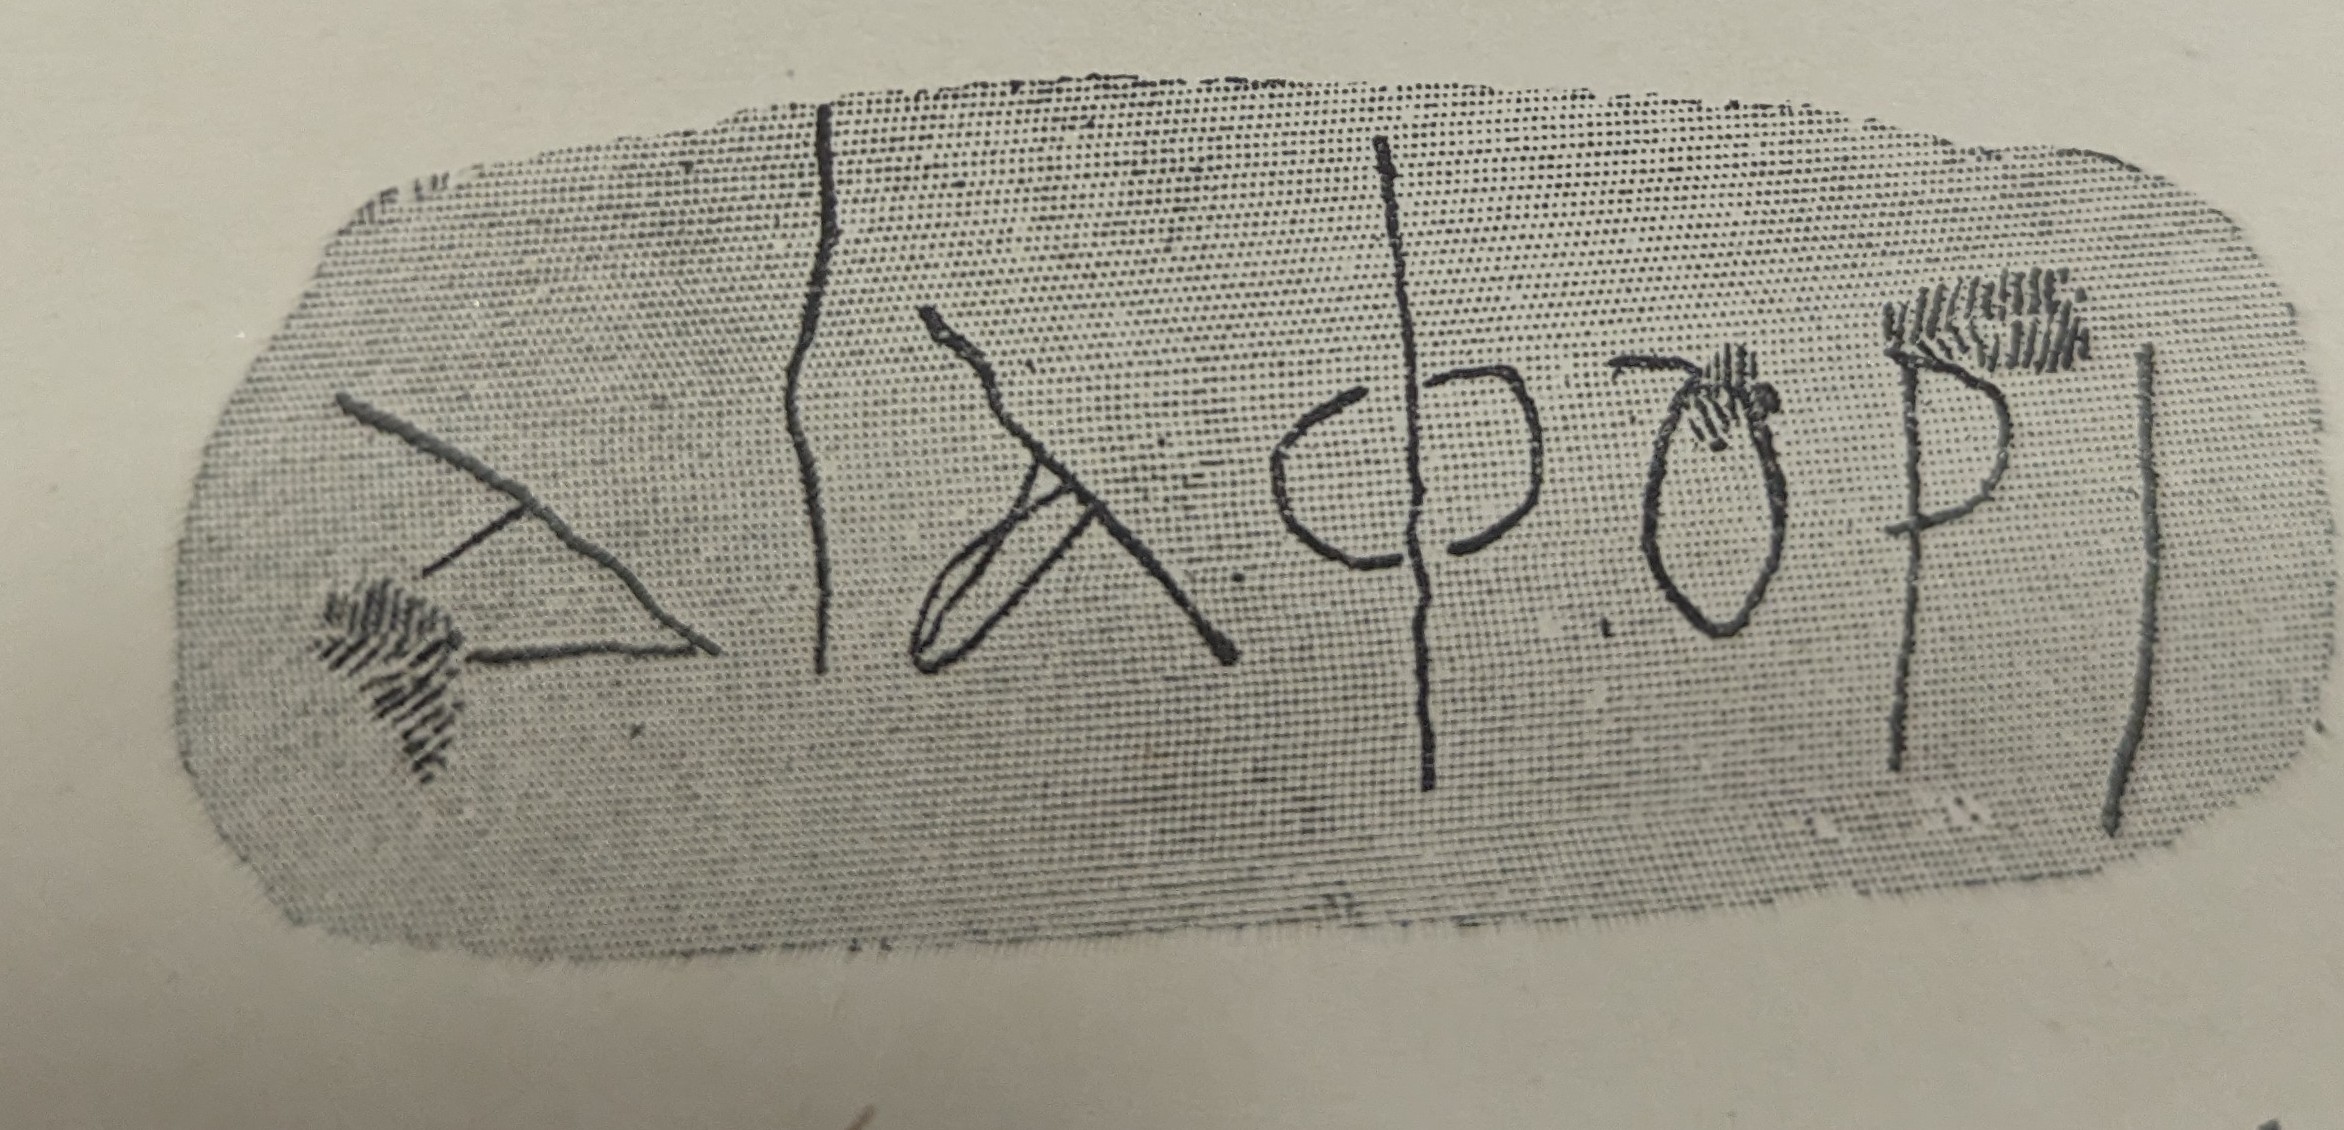 ΔΙΑΦΟΡΙ